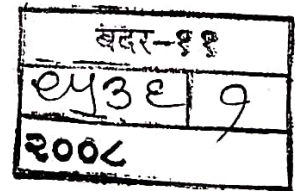 बदर-११
९५३६ १
२००८